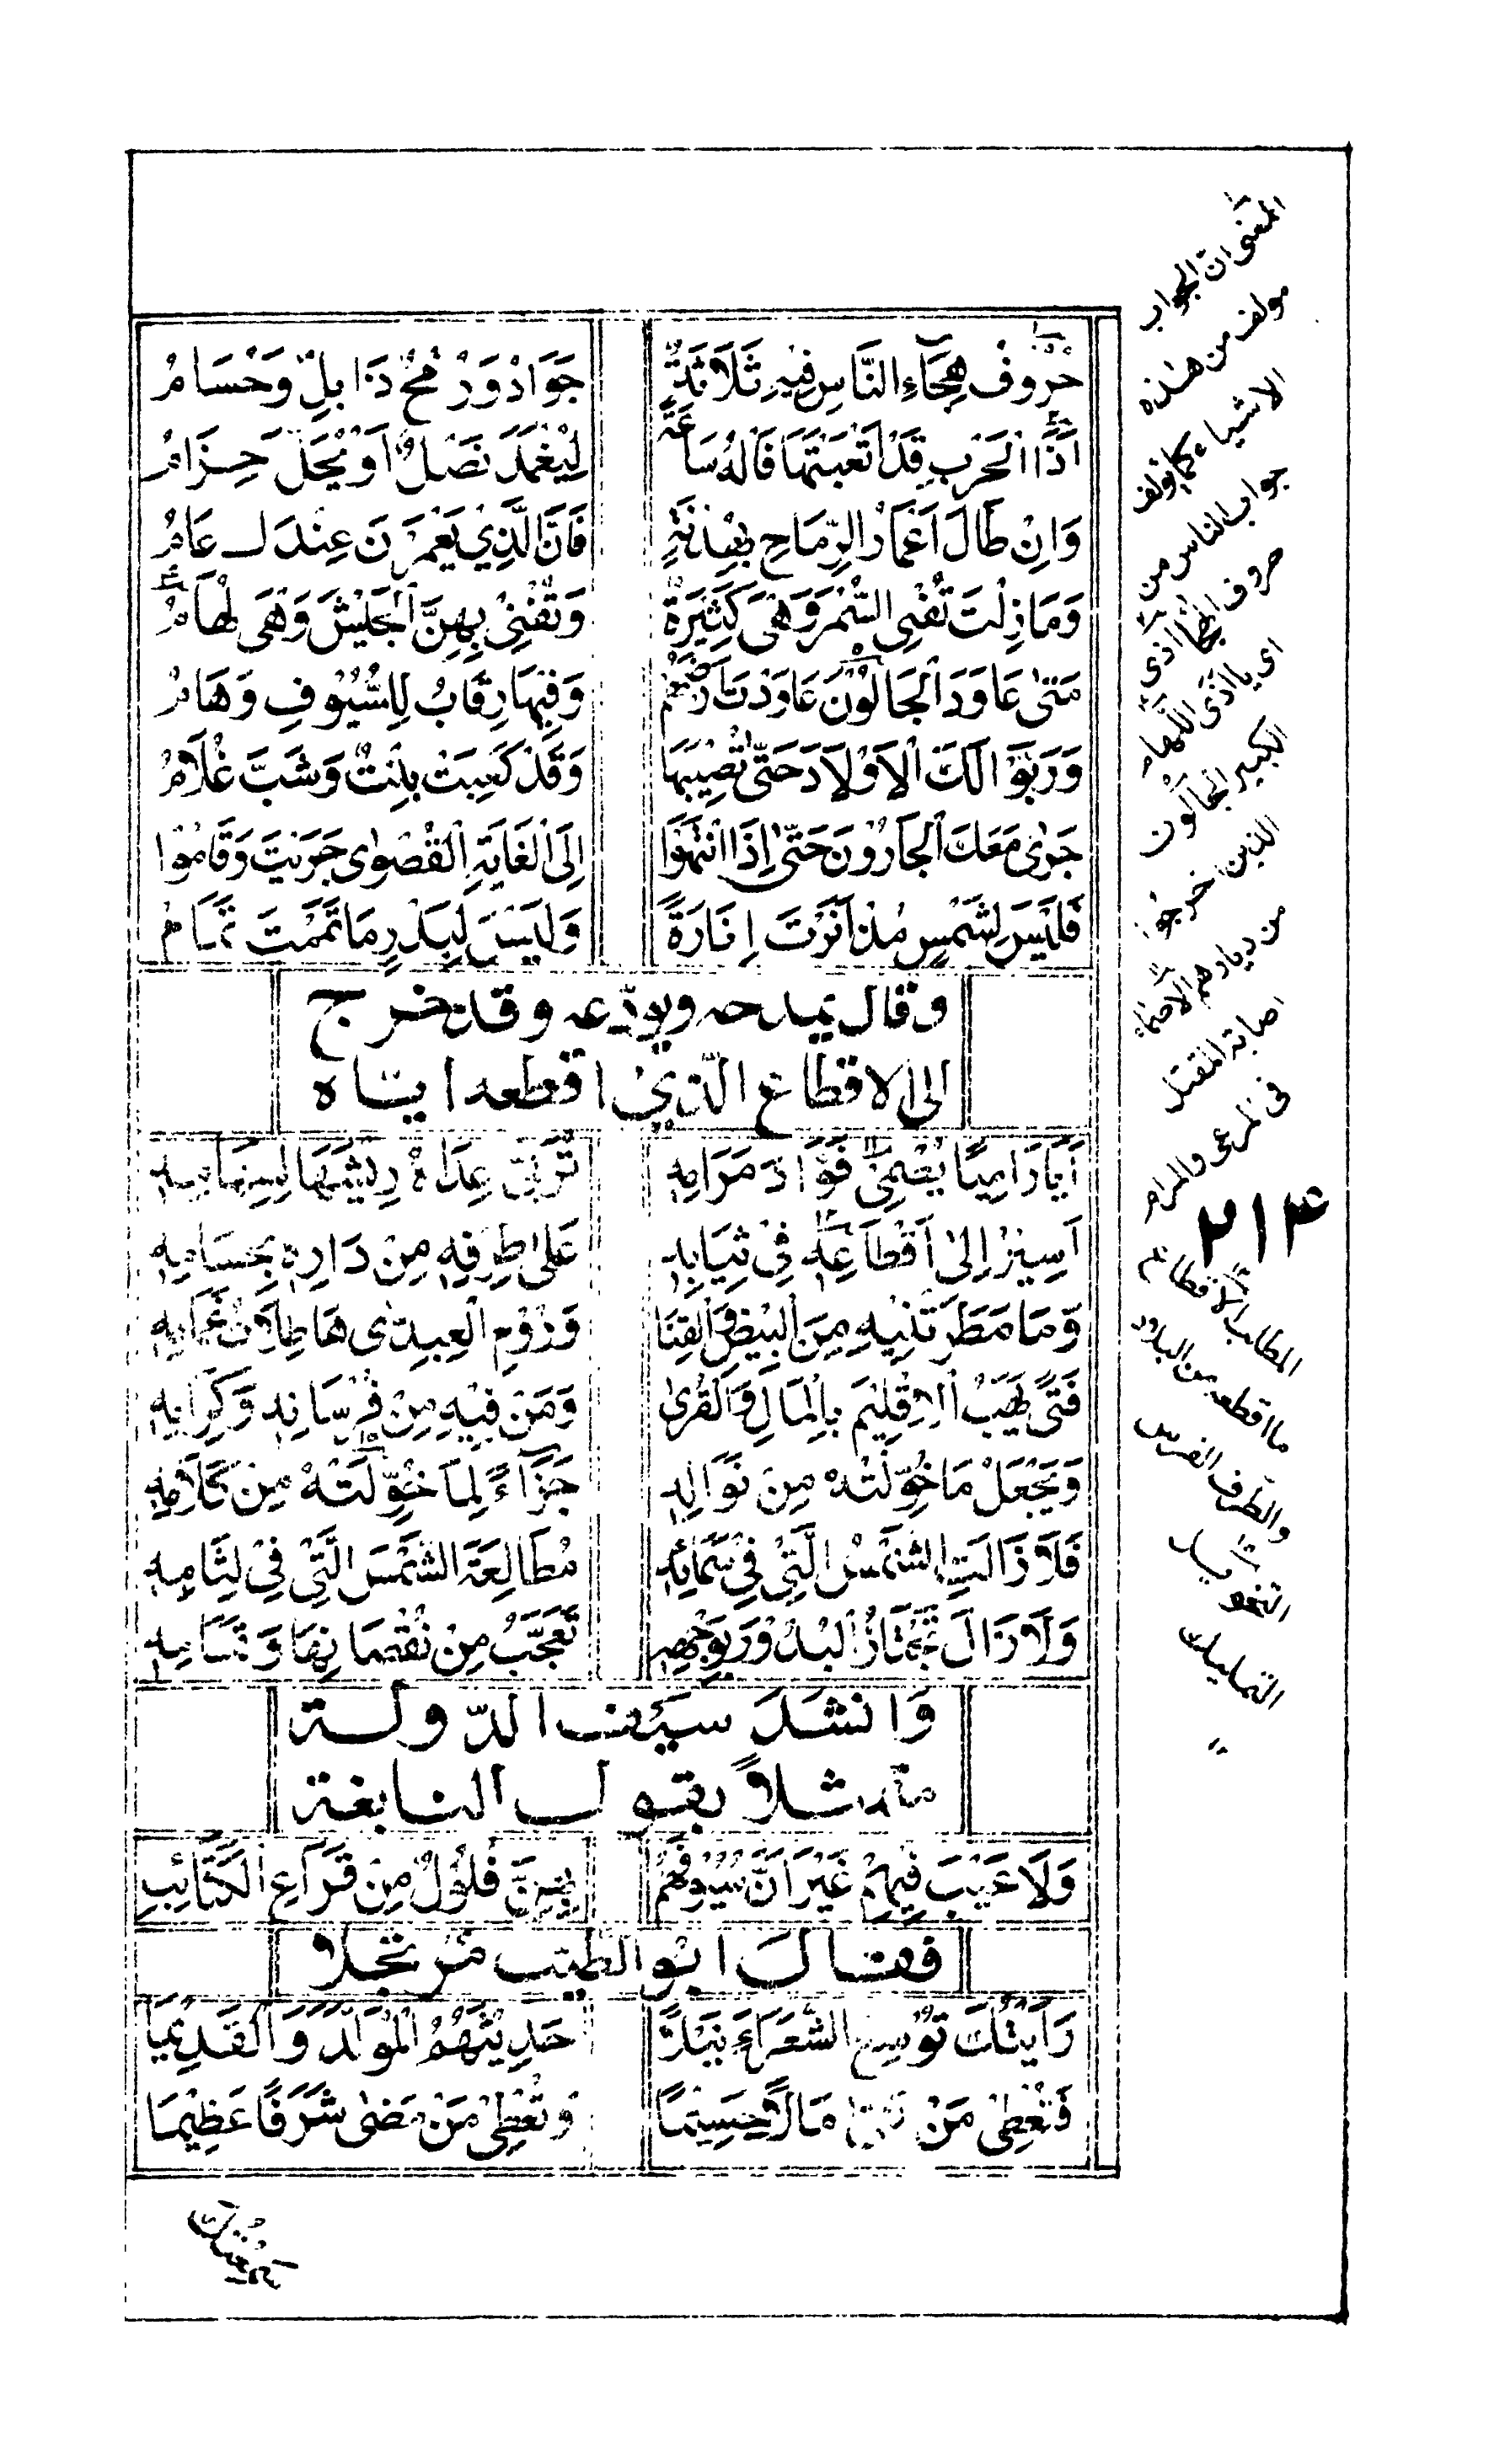 حُرُوفُ هِجَاءِ النَّاسِ فِيْهِ ثَلَاثَةٌ جَوَادٌ وَرُمْحٌ ذَابِلٌ وَحُسَامُ
اَذَا الْحَرْبِ قَدْ اَتْعَبْتَهَا فَالْهُ سَاعَةً لِيُغْمَدَ نَصْلٌ اَوْ يُحَلَّ حِزَامُ
وَاِنْ طَالَ اَعْمَارُ الرِّمَاحِ بِهُدْنَةٍ فَاِنَّ الَّذِيْ يَعْمُرْنَ عِنْدَكَ عَامُ
وَمَا زِلْتَ تُفْنِى السُّمْرَ وَهْىَ كَثِيْرَةٌ وَتُفْنِيْ بِهِنَّ الْجَيْشَ وَهْىَ لُهَامُ
مَتٰى عَاوَدَ الْجَالُوْنَ عَاوَدْتَ اَرْضَهُمْ وَفِيْهَا رِقَابٌ لِلسُّيُوْفِ وَهَامُ
وَرَبَّوْا لَكَ الْاَوْلَادَ حَتّٰى تُصِيْبَهَا وَقَدْ كَعَبَتْ بِنْتٌ وَشَبَّ غُلَامُ
جَرٰى مَعَكَ الْجَارُوْنَ حَتّٰى اِذَا انْتَهَوْا اِلَى الْغَايَةِ الْقُصْوٰى جَرَيْتَ وَقَامُوْا
فَلَيْسَ لِشَمْسٍ مُذْ اَنَرْتَ اِنَارَةٌ وَلَيْسَ لِبَدْرٍ مَا تَمَمْتَ تَمَامُ
وقال يمدحه ويودّعه وقد خرج
الى الاقطاع الّذي اقطعه ايّاه
اَيَا رَامِيًا يُصْمِيْ فُؤَادَ مَرَامِهِ تُرَبِّيْ عِدَاهُ رِيْشَهَا لِسِهَامِهِ
اَسِيْرُ اِلٰى اَقْطَاعِهِ فِيْ ثِيَابِهِ عَلٰى طِرْفِهِ مِنْ دَارِهِ بِحُسَامِهِ
وَمَا مَطَرَتْنِيْهِ مِنَ الْبِيْضِ وَالْقَنَا وَرُوْمِ الْعِبِدّٰى هَاطِلَاتُ غَمَامِهِ
فَتًى يَهَبُ الْاِقْلِيْمَ بِالْمَالِ وَالْقُرٰى وَمَنْ فِيْهِ مِنْ فُرْسَانِهِ وَكِرَامِهِ
وَيَجْعَلُ مَا خُوِّلْتُهُ مِنْ نَوَالِهِ جَزَاءً لِمَا خُوِّلْتُهُ مِنْ كَلَامِهِ
فَلَا زَالَتِ الشَّمْسُ الَّتِيْ فِيْ سَمَائِهِ مُطَالِعَةَ الشَّمْسِ الَّتِيْ فِيْ لِثَامِهِ
وَلَا زَالَ تَجْتَازُ الْبُدُوْرُ بِوَجْهِهِ تَعَجَّبُ مِنْ نُقْصَانِهَا وَتَمَامِهِ
وَانشَدَ سَيْف الدّولة
متمثلاً بقول النابغة
وَلَا عَيْبَ فِيْهِمْ غَيْرَ اَنَّ سُيُوْفَهُمْ بِهِنَّ فُلُوْلٌ مِنْ قِرَاعِ الْكَتَائِبِ
فقال ابو الطيب مرتجلا
رَاَيْتُكَ تُوْسِعُ الشُّعَرَاءَ نَيْلًا حَدِيْثَهُمُ الْمُوَلَّدَ وَالْقَدِيْمَا
فَتُعْطِيْ مَنْ مَالًا جَسِيْمًا وَتُعْطِيْ مَنْ مَضٰى شَرَفًا عَظِيْمَا
المعنى ان الجواب
مولف من هذه
الاشياء كما يؤلف
جواب الناس من
حروف الهجا اذى
اى يا اذى اللهام
الكبير الجالون
الذين اخرجوا
من ديارهم الاصماء
اصابة المقتل
فى المرعى والمرام
٢١٤
المطالب الاقطاع
ما اقطعه من البلاد
والطرف الفرس